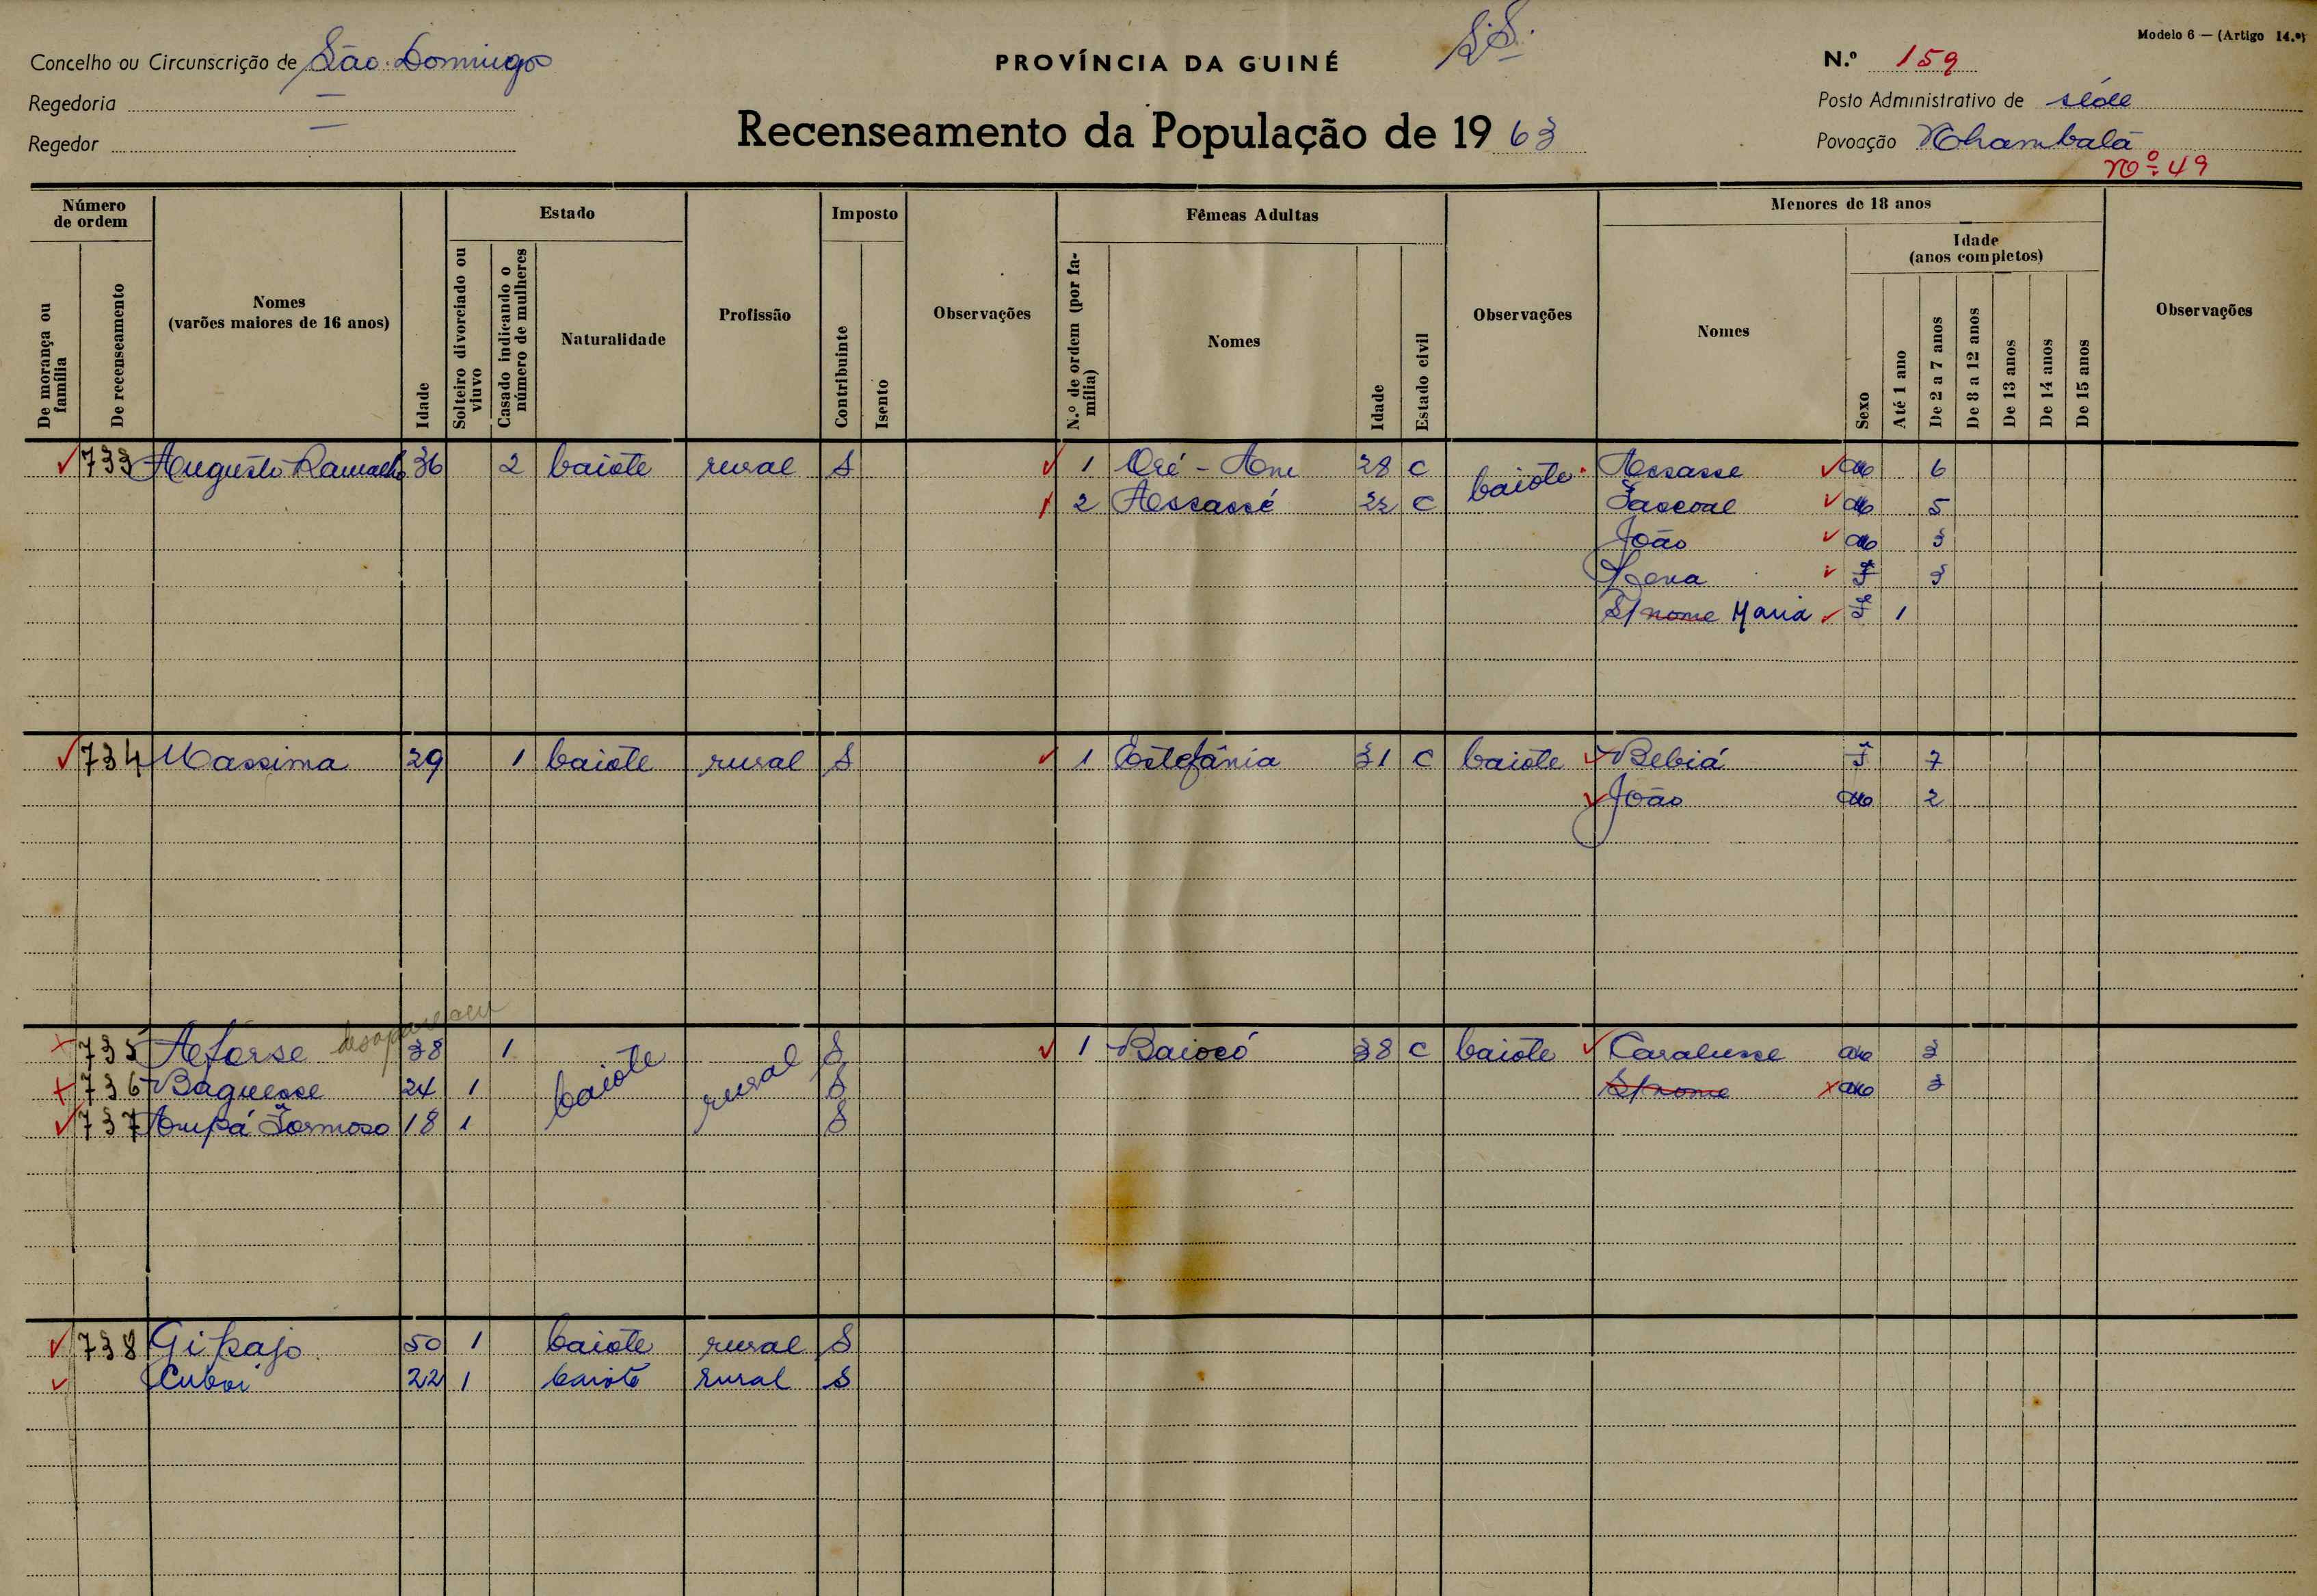 Modelo 6 — (Artigo 14.º)
Concelho ou Circunscrição de São Domingos
PROVÍNCIA DA GUINÉ
S.S.
N.º 159
Regedoria —
Posto Administrativo de séde
Regedor —
Recenseamento da População de 1963
Povoação Nhambalã
Nº 49
Número de ordem
Estado
Imposto
Fêmeas Adultas
Menores de 18 anos
Idade (anos completos)
De morança ou família
De recenseamento
Nomes (varões maiores de 16 anos)
Idade
Solteiro divorciado ou viuvo
Casado indicando o número de mulheres
Naturalidade
Profissão
Contribuinte
Isento
Observações
N.º de ordem (por família)
Nomes
Idade
Estado civil
Observações
Nomes
Sexo
Até 1 ano
De 2 a 7 anos
De 8 a 12 anos
De 13 anos
De 14 anos
De 15 anos
Observações
733 Augusto 36 2 baiote rural S 1 28 C baiote Assasse m 6
2 Assassé 22 C Pascoal m 5
João m 3
F 3
S/ nome Maria F 1
734 Massima 29 1 baiote rural S 1 Estefânia 31 C baiote Bebiá F 7
João m 2
desapareceu
735 Aforse 38 1 baiote rural S 1 Baiocó 38 C baiote Caralusse m 3
736 Baguesse 24 1 S S/nome m 3
737 Formoso 18 1 S
738 Gikajo 50 1 baiote rural S
Cuboi 22 1 baiote rural S